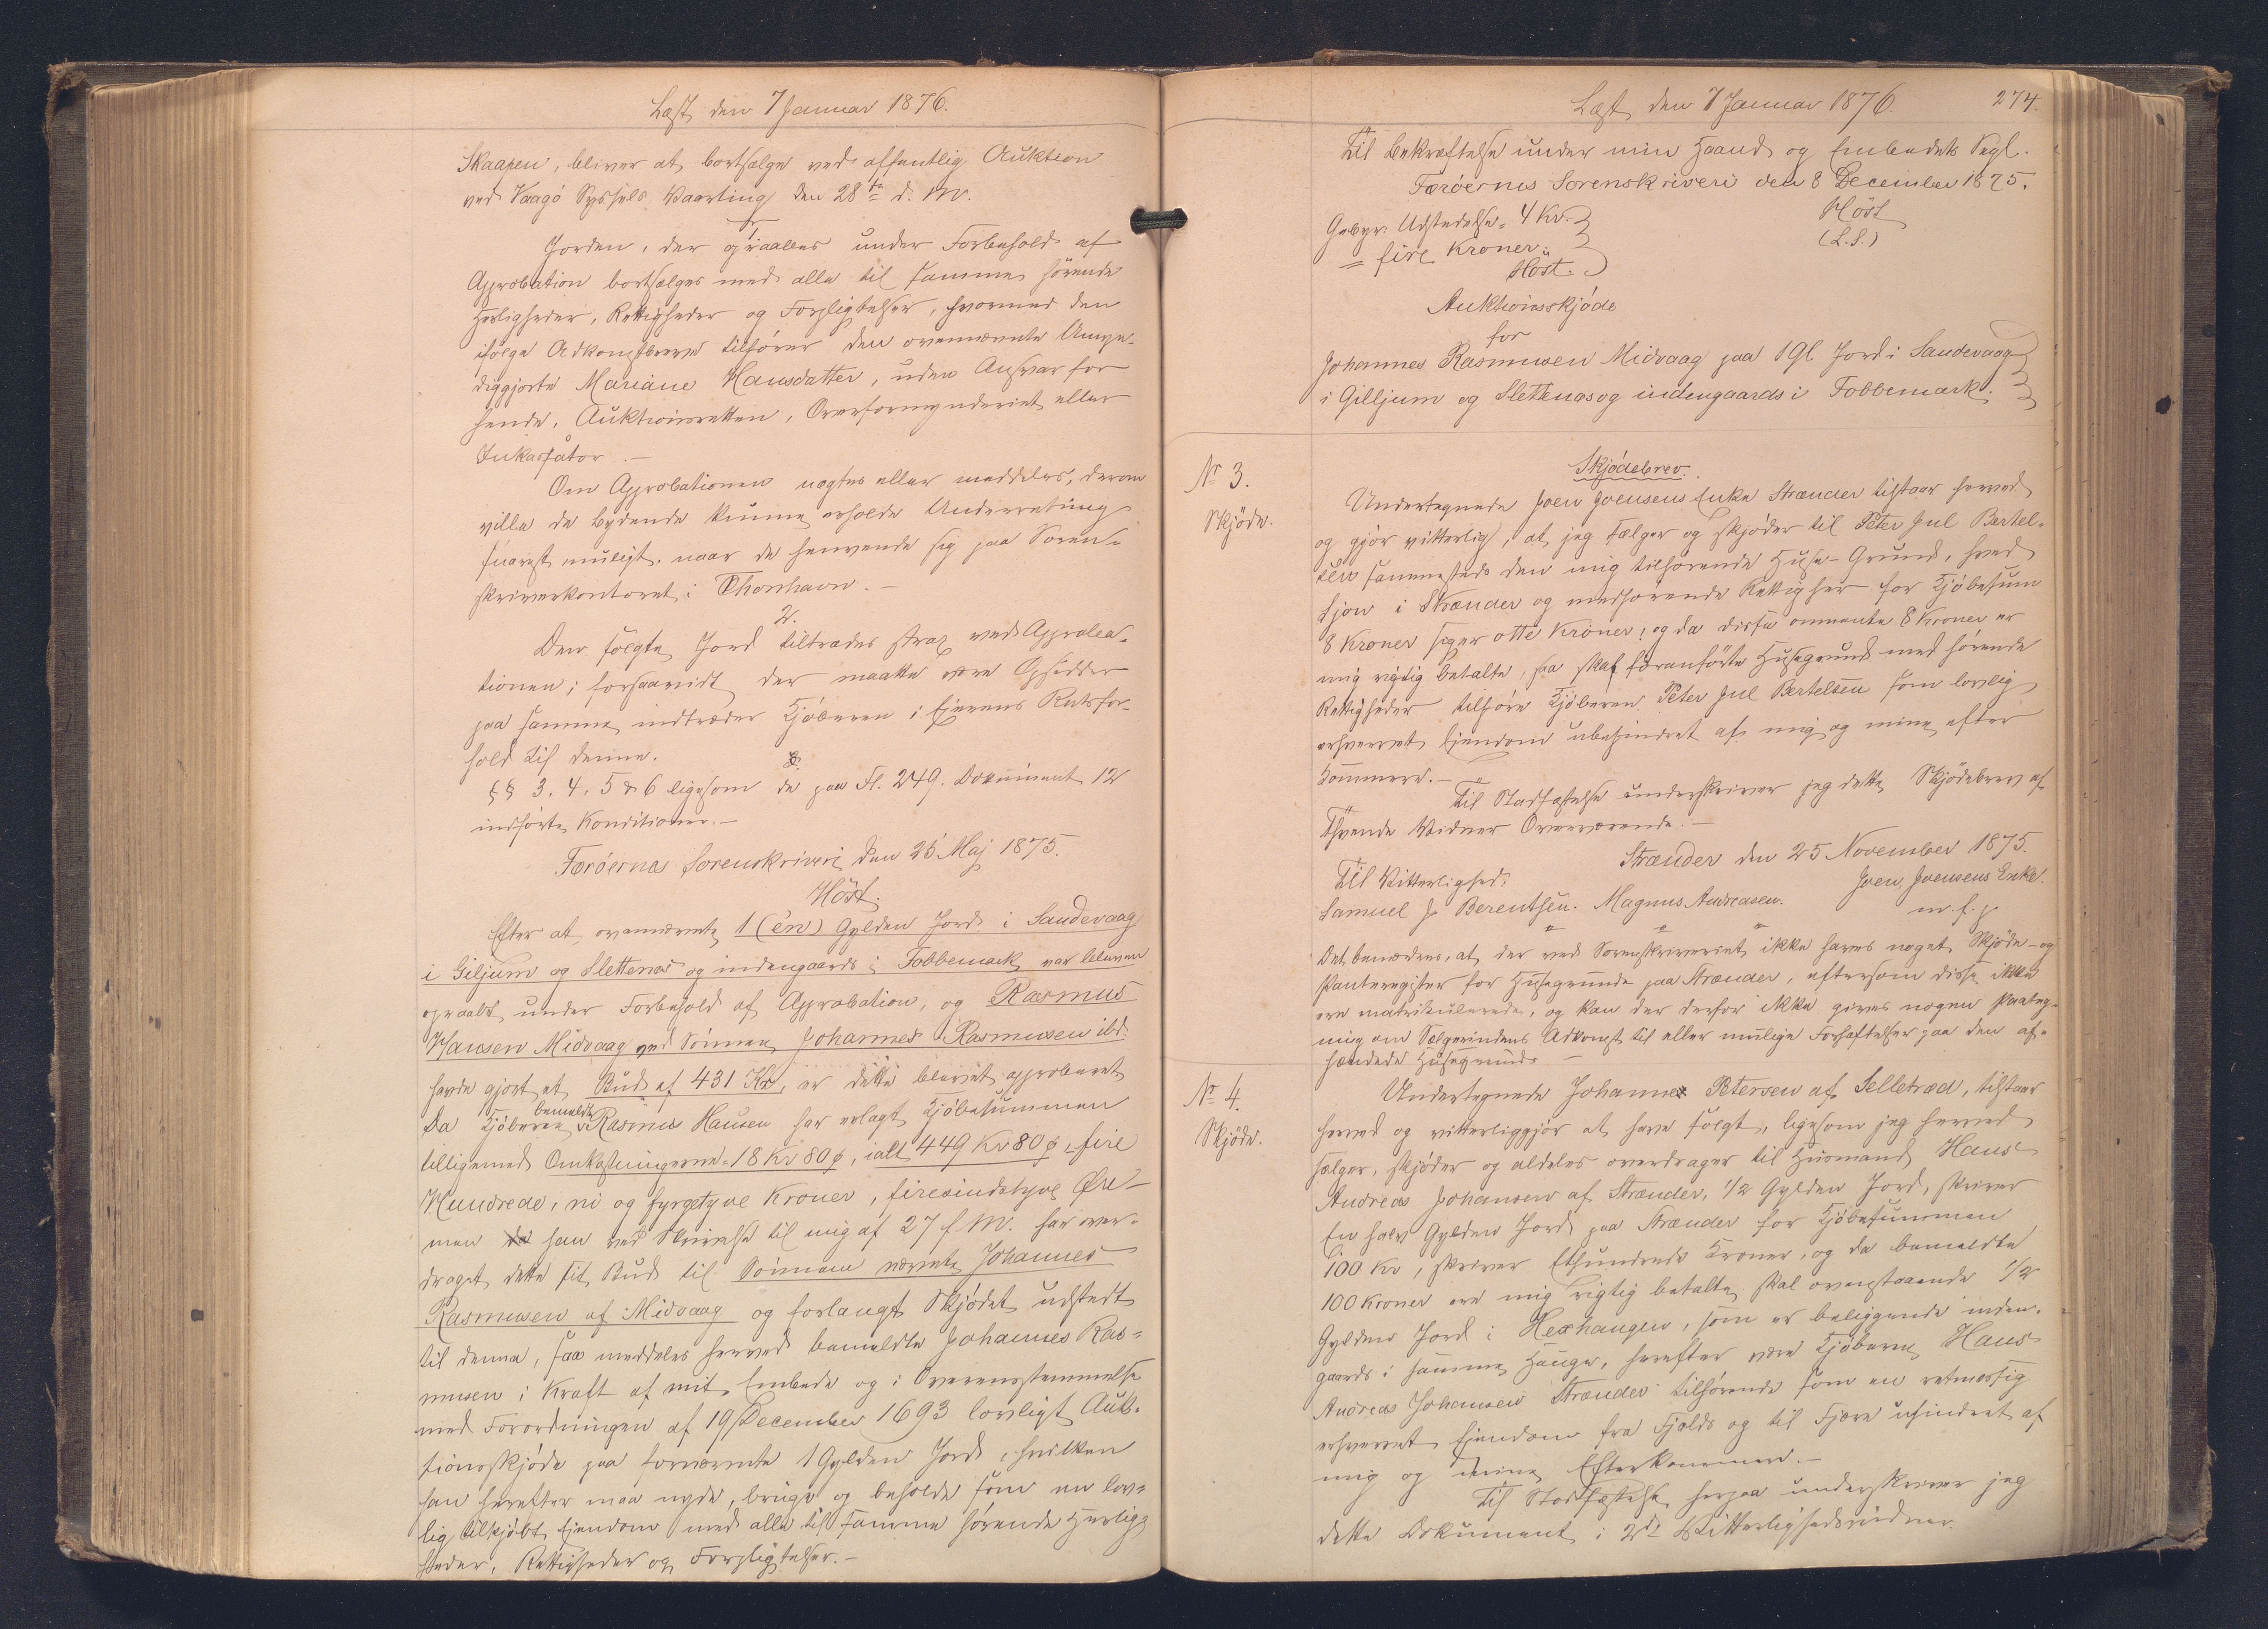 Læst den 7 Januar 1876.
Skaapen, bliver at bortsælge ved offentlig Auktion
ved Vaagø Syssels Vaarting den 28de d. M.
1.
Jorden, der opraabes under Forbehold af
Approbation bortsælges med alle til samme hörende
Herligheder, Rettigheder og Forpligtelser, hvormed den
ifølge Adkomstbreve tilhører den ovennævnte Umyn-
diggjorte Mariane Hansdatter, uden Ansvar for
hende, Auktionsretten, Overformynderiet eller
Inkassator.—
Om Approbationen nægtes eller meddeles, derom
ville de bydende kunne erholde Underretning
snarest muligt, naar de henvende sig paa Soren-
skriverkontoret i Thorshavn.—
2.
Den solgte Jord tiltrædes strax ved Approba-
tionen; forsaavidt der maatte være Opsidder
paa samme indtræder Kjöberen i Ejerens Retsfor-
hold til denne.
§§ 3. 4. 5 & 6 ligesom de paa Fl. 249. Dokument 12
indførte Konditioner.—
Færöernes Sorenskriveri den 26 Maj 1875.
Höst.
Efter at ovennævnte 1 (én) Gylden Jord i Sandevaag
i Giljum og Slettenæs og indengaards i Fobbemark var bleven
opraabt under Forbehold af Approbation, og Rasmus
Hansen Midvaag ved Sönnen Johannes Rasmusen ibd.
havde gjort et Bud af 431 Kr, er dette blevet approberet
Da Kjöberen bemeldte Rasmus Hansen har erlagt Kjöbesummen
tilligemed Omkostningerne = 18 Kr 80 ø, ialt 449 Kr 80 ø = fire
Hundrede, ni og fyrgetyve Kroner, firesindstyve Øre –
men han ved Skrivelse til mig af 27 f. M. har over-
draget dette sit Bud til Sönnen nævnte Johannes
Rasmusen af Midvaag og forlangt Skjödet udstedt
til denne, saa meddeles herved bemeldte Johannes Ras-
musen i Kraft af mit Embede og i Overensstemmelse
med Forordningen af 19 December 1693 lovligt Auk-
tionsskjöde paa fornævnte 1 Gylden Jord, hvilken
han herefter maa nyde, bruge og beholde som en lov-
lig tilkjöbt Ejendom med alle til samme hörende Herlig-
heder, Rettigheder og Forpligtelser.—
Læst den 7 Januar 1876
274.
Til Bekræftelse under min Haand og Embedets Segl.
Færöernes Sorenskriveri den 8 December 1875.
Höst
(L.S.)
Gebyr: Udstedelse = 4 Kr.
= fire Kroner.
Höst.
Auktionsskjöde
for
Johannes Rasmusen Midvaag paa 1 Gl. Jord i Sandevaag
i Gilljum og Slettenæs og indengaards i Fobbemark.
No 3.
Skjöde.
Skjödebrev.
Undertegnede Joen Joensens Enke Strænder tilstaar herved
og gjör vitterlig, at jeg sælger og skjöder til Peter Jul Bertel-
sen sammesteds den mig tilhørende Huse-Grund, hved
Sjov i Strænder og medhørende Rettigher for Kjöbesum
8 Kroner siger otte Kroner; og da disse ommente 8 Kroner er
mig rigtig betalte, saa skal foranførte Husegrund med hörende
Rettigheder tilhöre Kjöberen Peter Jul Bertelsen som lovlig
erhvervet Ejendom ubehindret af mig og mine efter
kommere.—
Til Stadfæstelse underskriver jeg dette Skjödebrev af
tvende Vidner Overværende.—
Strænder den 25 November 1875.
Til Vitterlighed:
Joen Joensens Enke.
Samuel J Berentsen. Magnus Andreasen.
m. f. p.
Det bemærkes, at der ved Sorenskriveriet ikke haves noget Skjöde- og
Panteregister for Husegrunde paa Strænder, eftersom disse ikke
ere matrikulerede, og kan der derfor ikke gives nogen Paateg-
ning om Sælgerindens Adkomst til eller mulige Forhæftelser paa den af-
hændede Husegrund. —
No 4.
Skjöde.
Undertegnede Johannes Petersen af Selletræd, tilstaar
herved og vitterliggjør at have solgt, ligesom jeg herved
sælger, skjöder og aldeles overdrager til Husmand Hans
Andreas Johansen af Strænder, 1/2 Gylden Jord, skriver
En halv Gylden Jord paa Strænder for Kjöbesummen
100 Kr, skriver Ethundrede Kroner, og da bemeldte
100 Kroner ere mig rigtig betalte, skal ovenstaaende 1/2
Gylden Jord i Hexhaugen, som er beliggende inden-
gaards i samme Hauge, herefter være Kjöberen Hans
Andreas Johansen Strænder tilhörende som en retmæssig
erhvervet Ejendom fra Fjelds og til Fjære uhindret af
mig og mine Efterkommere.—
Til Stadfæstelse herpaa underskriver jeg
dette Dokument i 2de Vitterlighedsvidner